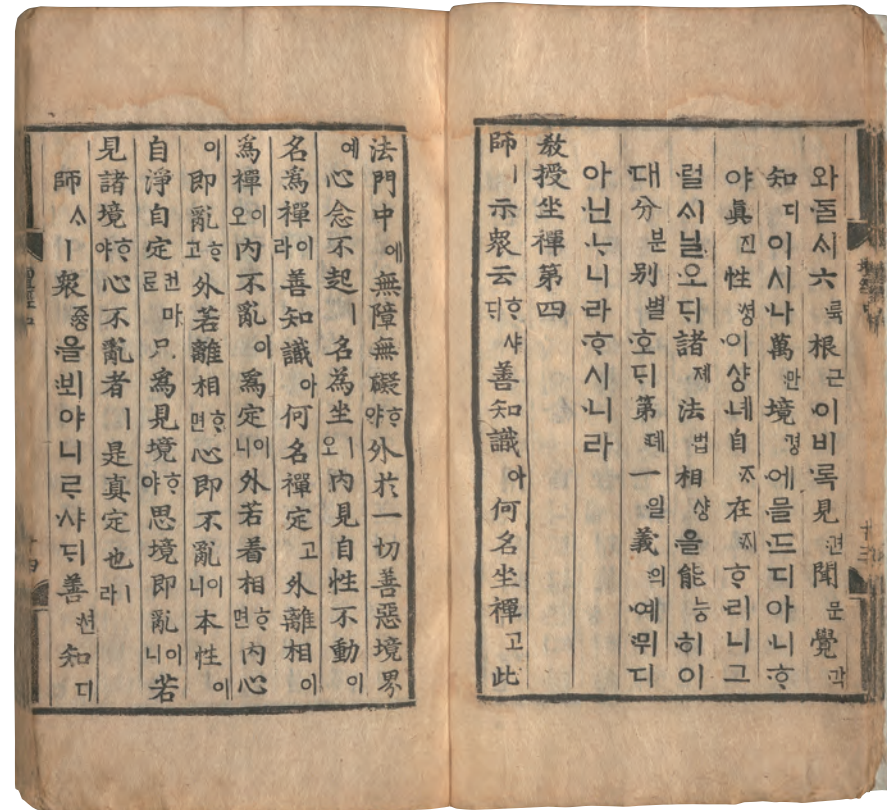 와ᄃᆞᆯᄉᆡ六륙根근이비록見견聞문覺각
知디이시나萬만境경에믈드디아니ᄒᆞ
야眞진性셩이샹녜自ᄌᆞ在ᄌᆡᄒᆞ리니그
럴ᄉᆡ닐오ᄃᆡ諸제法법相샹을能능히이
대分분別별호ᄃᆡ第뎨一일義의예뮈디
아닌ᄂᆞ니라ᄒᆞ시니라
敎授坐禪第四
師ㅣ示衆云ᄒᆞ샤ᄃᆡ善知識아何名坐禪고此
法門中에無障無礙ᄒᆞ야外於一切善惡境界
예心念不起ㅣ名為坐ㅣ오內見自性不動이
名為禪이라善知識아何名禪定고外離相이
為禪이오內不亂이為定이니外若着相ᄒᆞ면內心
이即亂ᄒᆞ고外若離相ᄒᆞ면心即不亂이니本性이
自淨自定컨마ᄅᆞᆫ只為見境ᄒᆞ야思境即亂이니若
見諸境ᄒᆞ야心不亂者ㅣ是真定也ㅣ라
師ᄉᆞㅣ衆즁을뵈야니ᄅᆞ샤ᄃᆡ善션知디